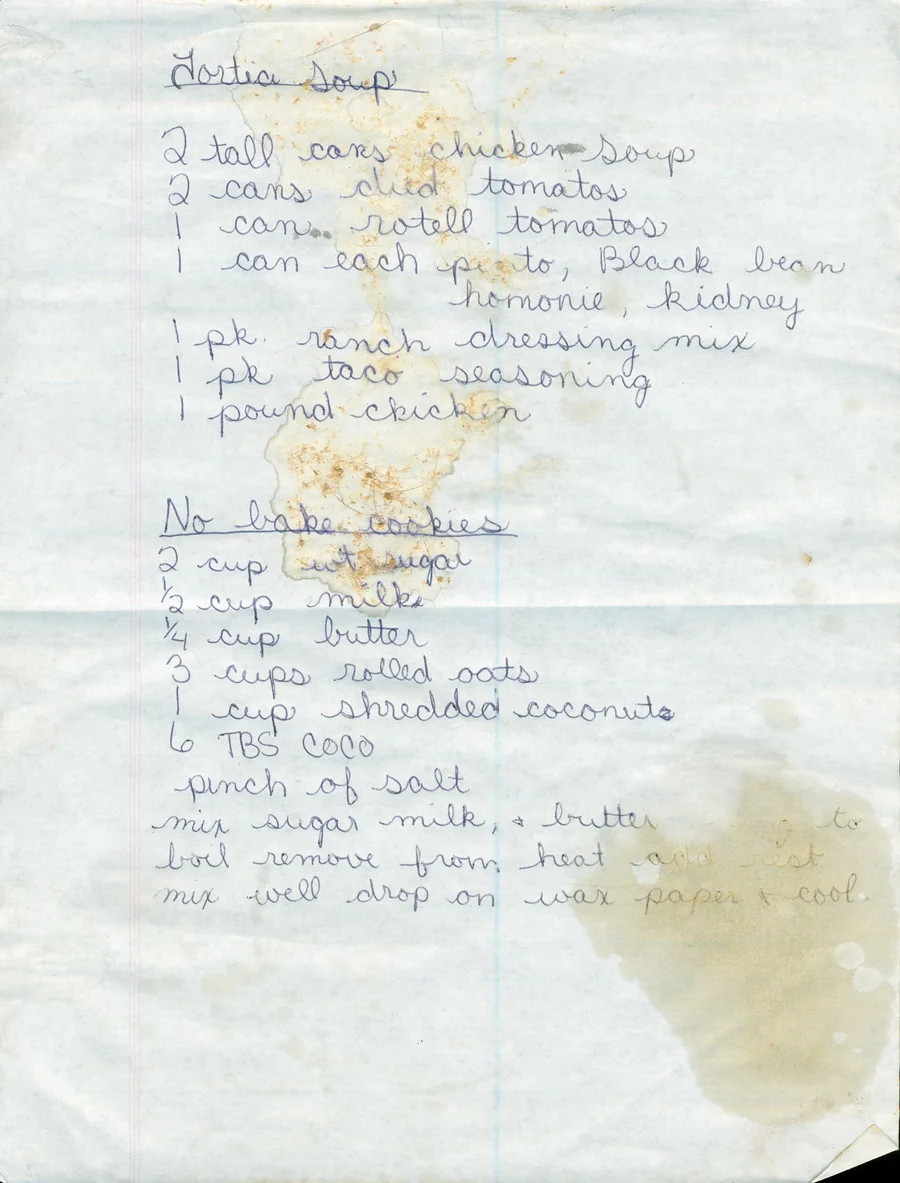 Tortia Soup
2 tall cans chicken soup
2 cans died tomatos
1 can rotell tomatos
1 can each pinto, Black bean
homonie, kidney
1 pk. ranch dressing mix
1 pk taco seasoning
1 pound chicken
No bake cookies
2 cup wt sugar
1/2 cup milk
1/4 cup butter
3 cups rolled oats
1 cup shredded coconut
6 TBS COCO
pinch of salt
mix sugar milk, & butter to
boil remove from heat add rest
mix well drop on wax paper & cool.